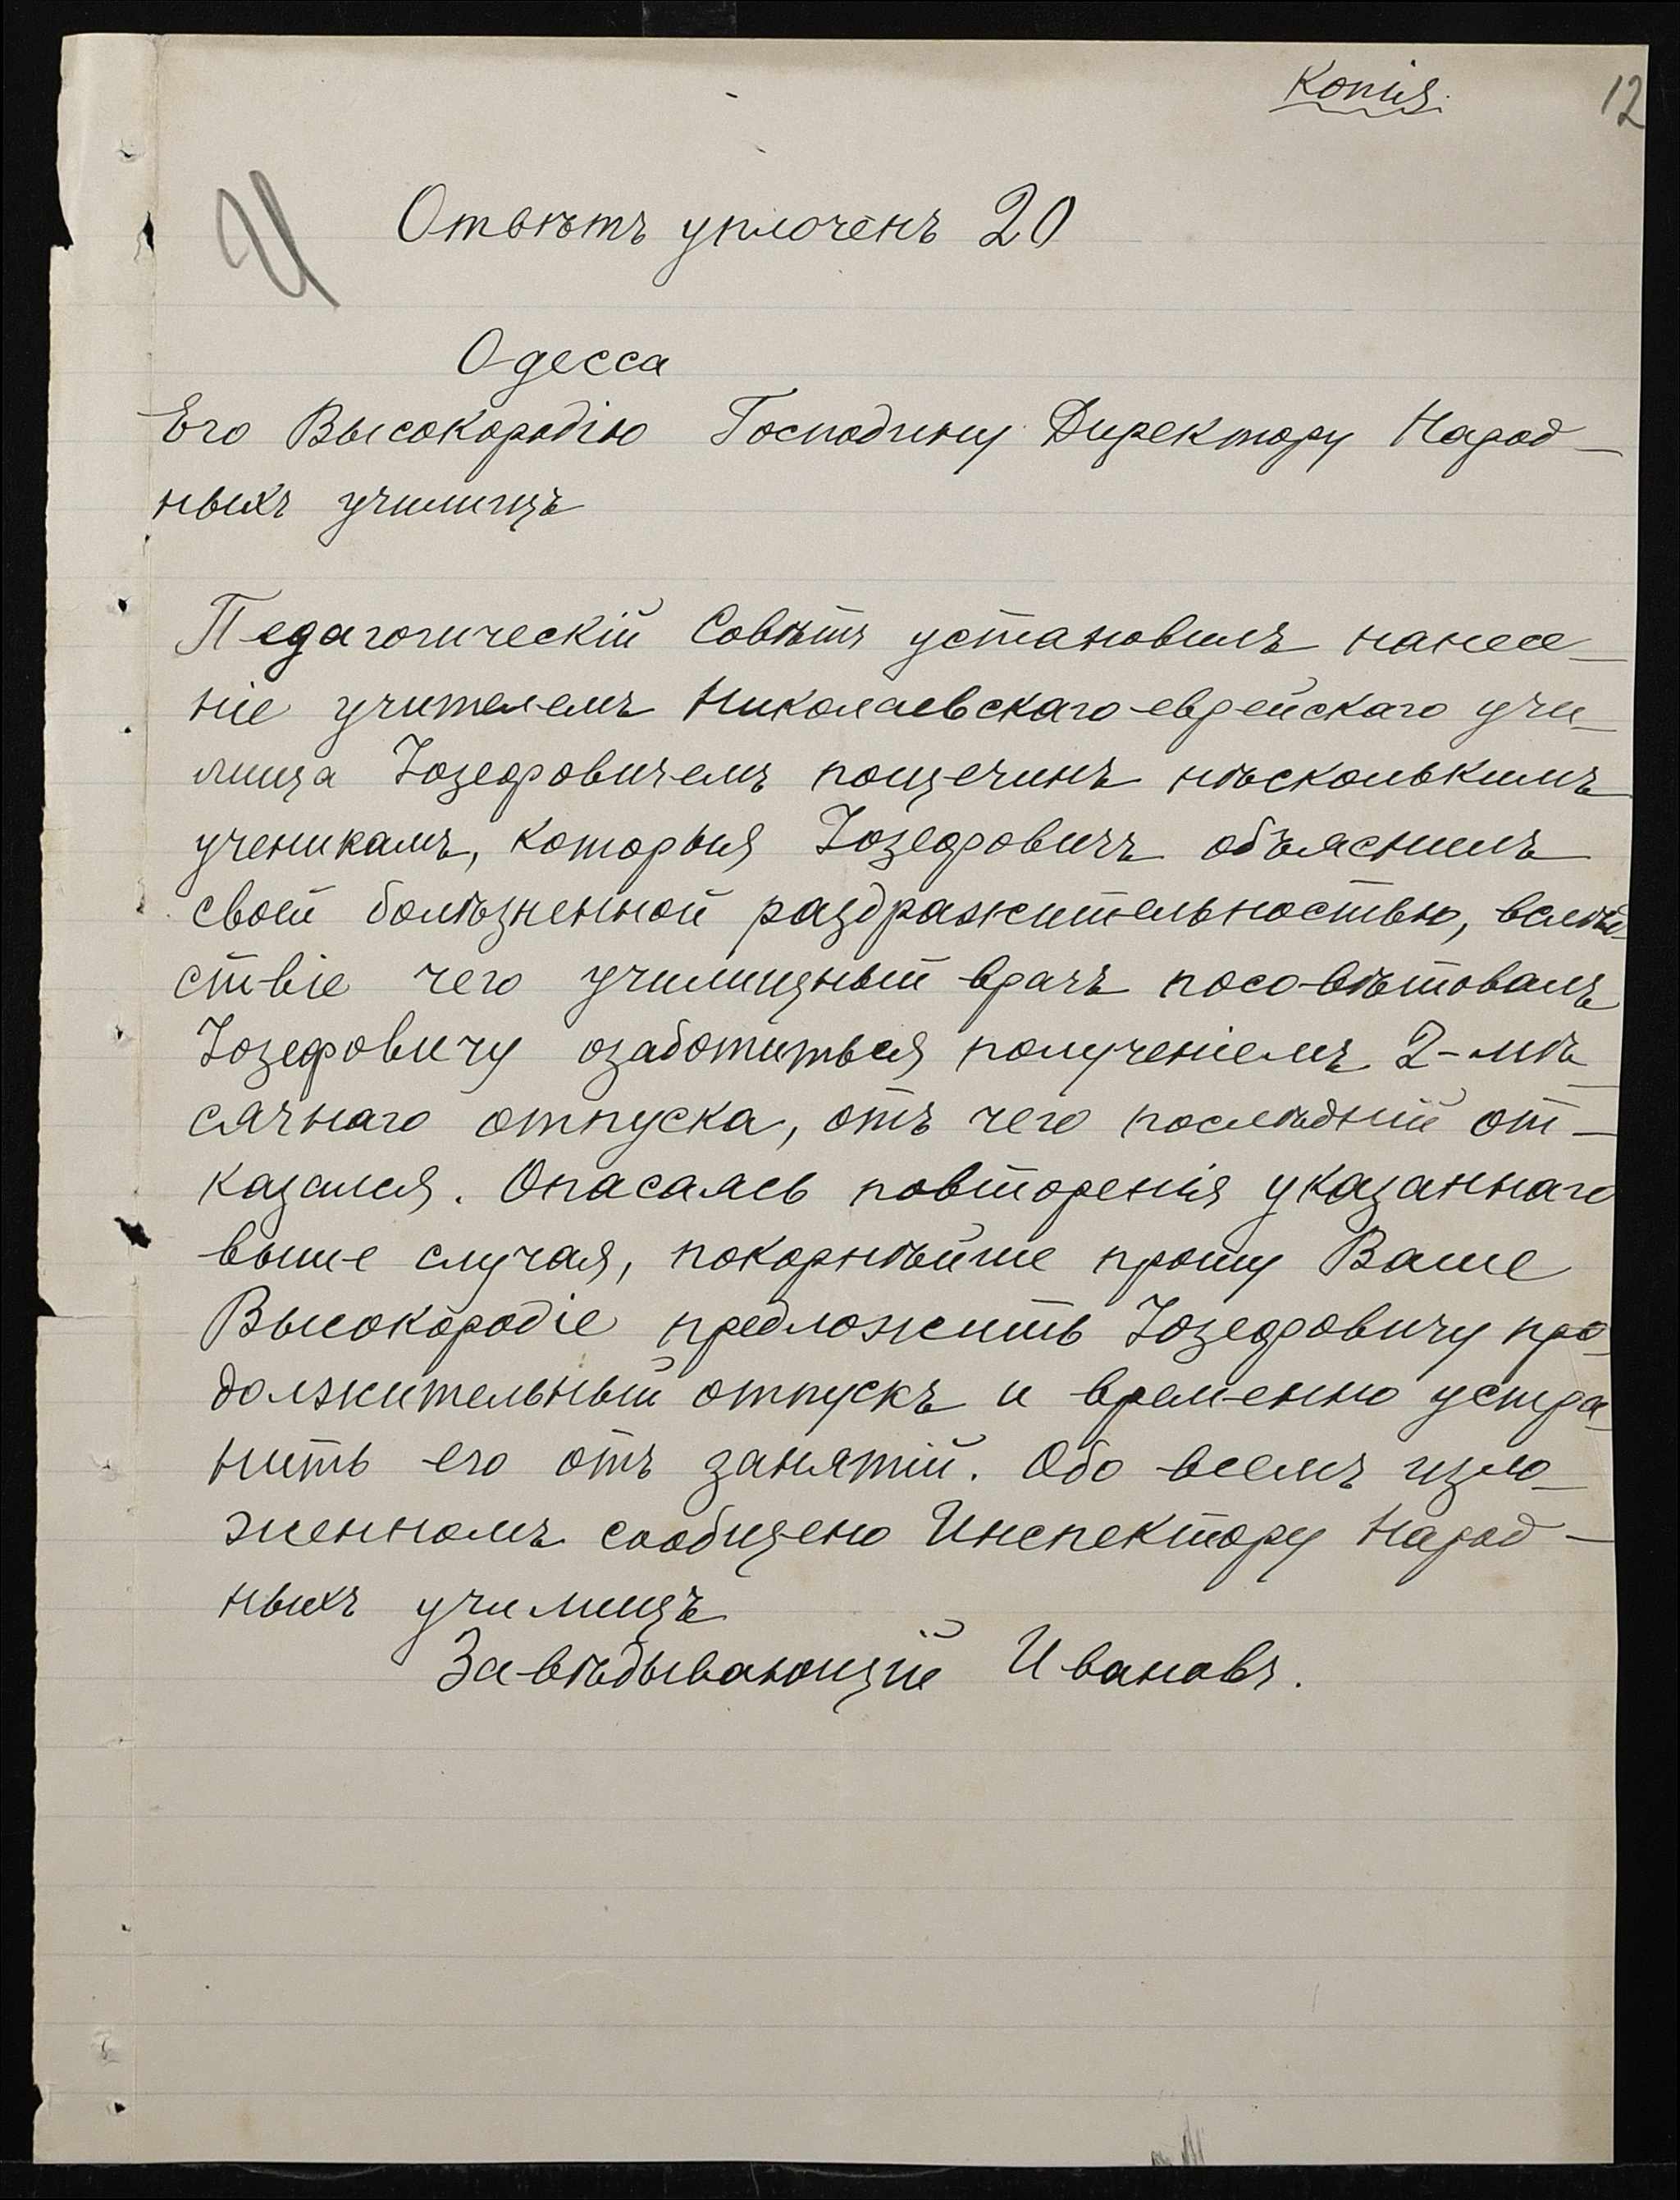 Копія.
12
И
Отвѣтъ уплоченъ 20
Одесса
Его Высокородію Господину Директору Народ-
ныхъ училищъ
Педагогическій Совѣтъ установилъ нанесе-
ніе учителемъ Николаевскаго еврейскаго учи-
лища Іозефовичемъ пощечинъ нѣсколькимъ
ученикамъ, которыя Іозефовичъ объяснилъ
своей болѣзненной раздражительностью, вслѣд-
ствіе чего училищный врачъ посовѣтовалъ
Іозефовичу озаботиться полученіемъ 2-мѣ-
сячнаго отпуска, отъ чего послѣдній от-
казался. Опасаясь повторенія указаннаго
выше случая, покорнѣйше прошу Ваше
Высокородіе предложить Іозефовичу про-
должительный отпускъ и временно устра-
нить его отъ занятій. Обо всемъ изло-
женномъ сообщено Инспектору Народ-
ныхъ училищъ
Завѣдывающій Ивановъ.